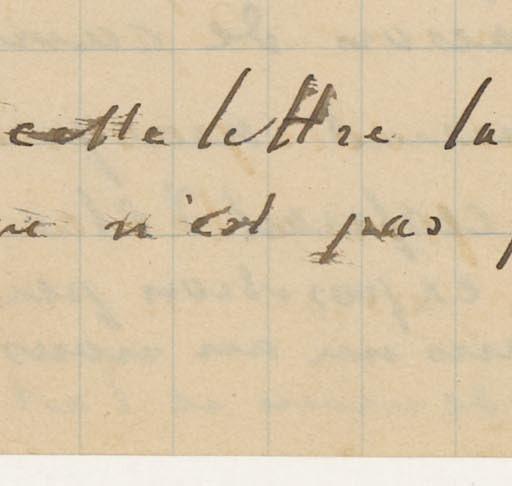 cette lettre la
n'est pas